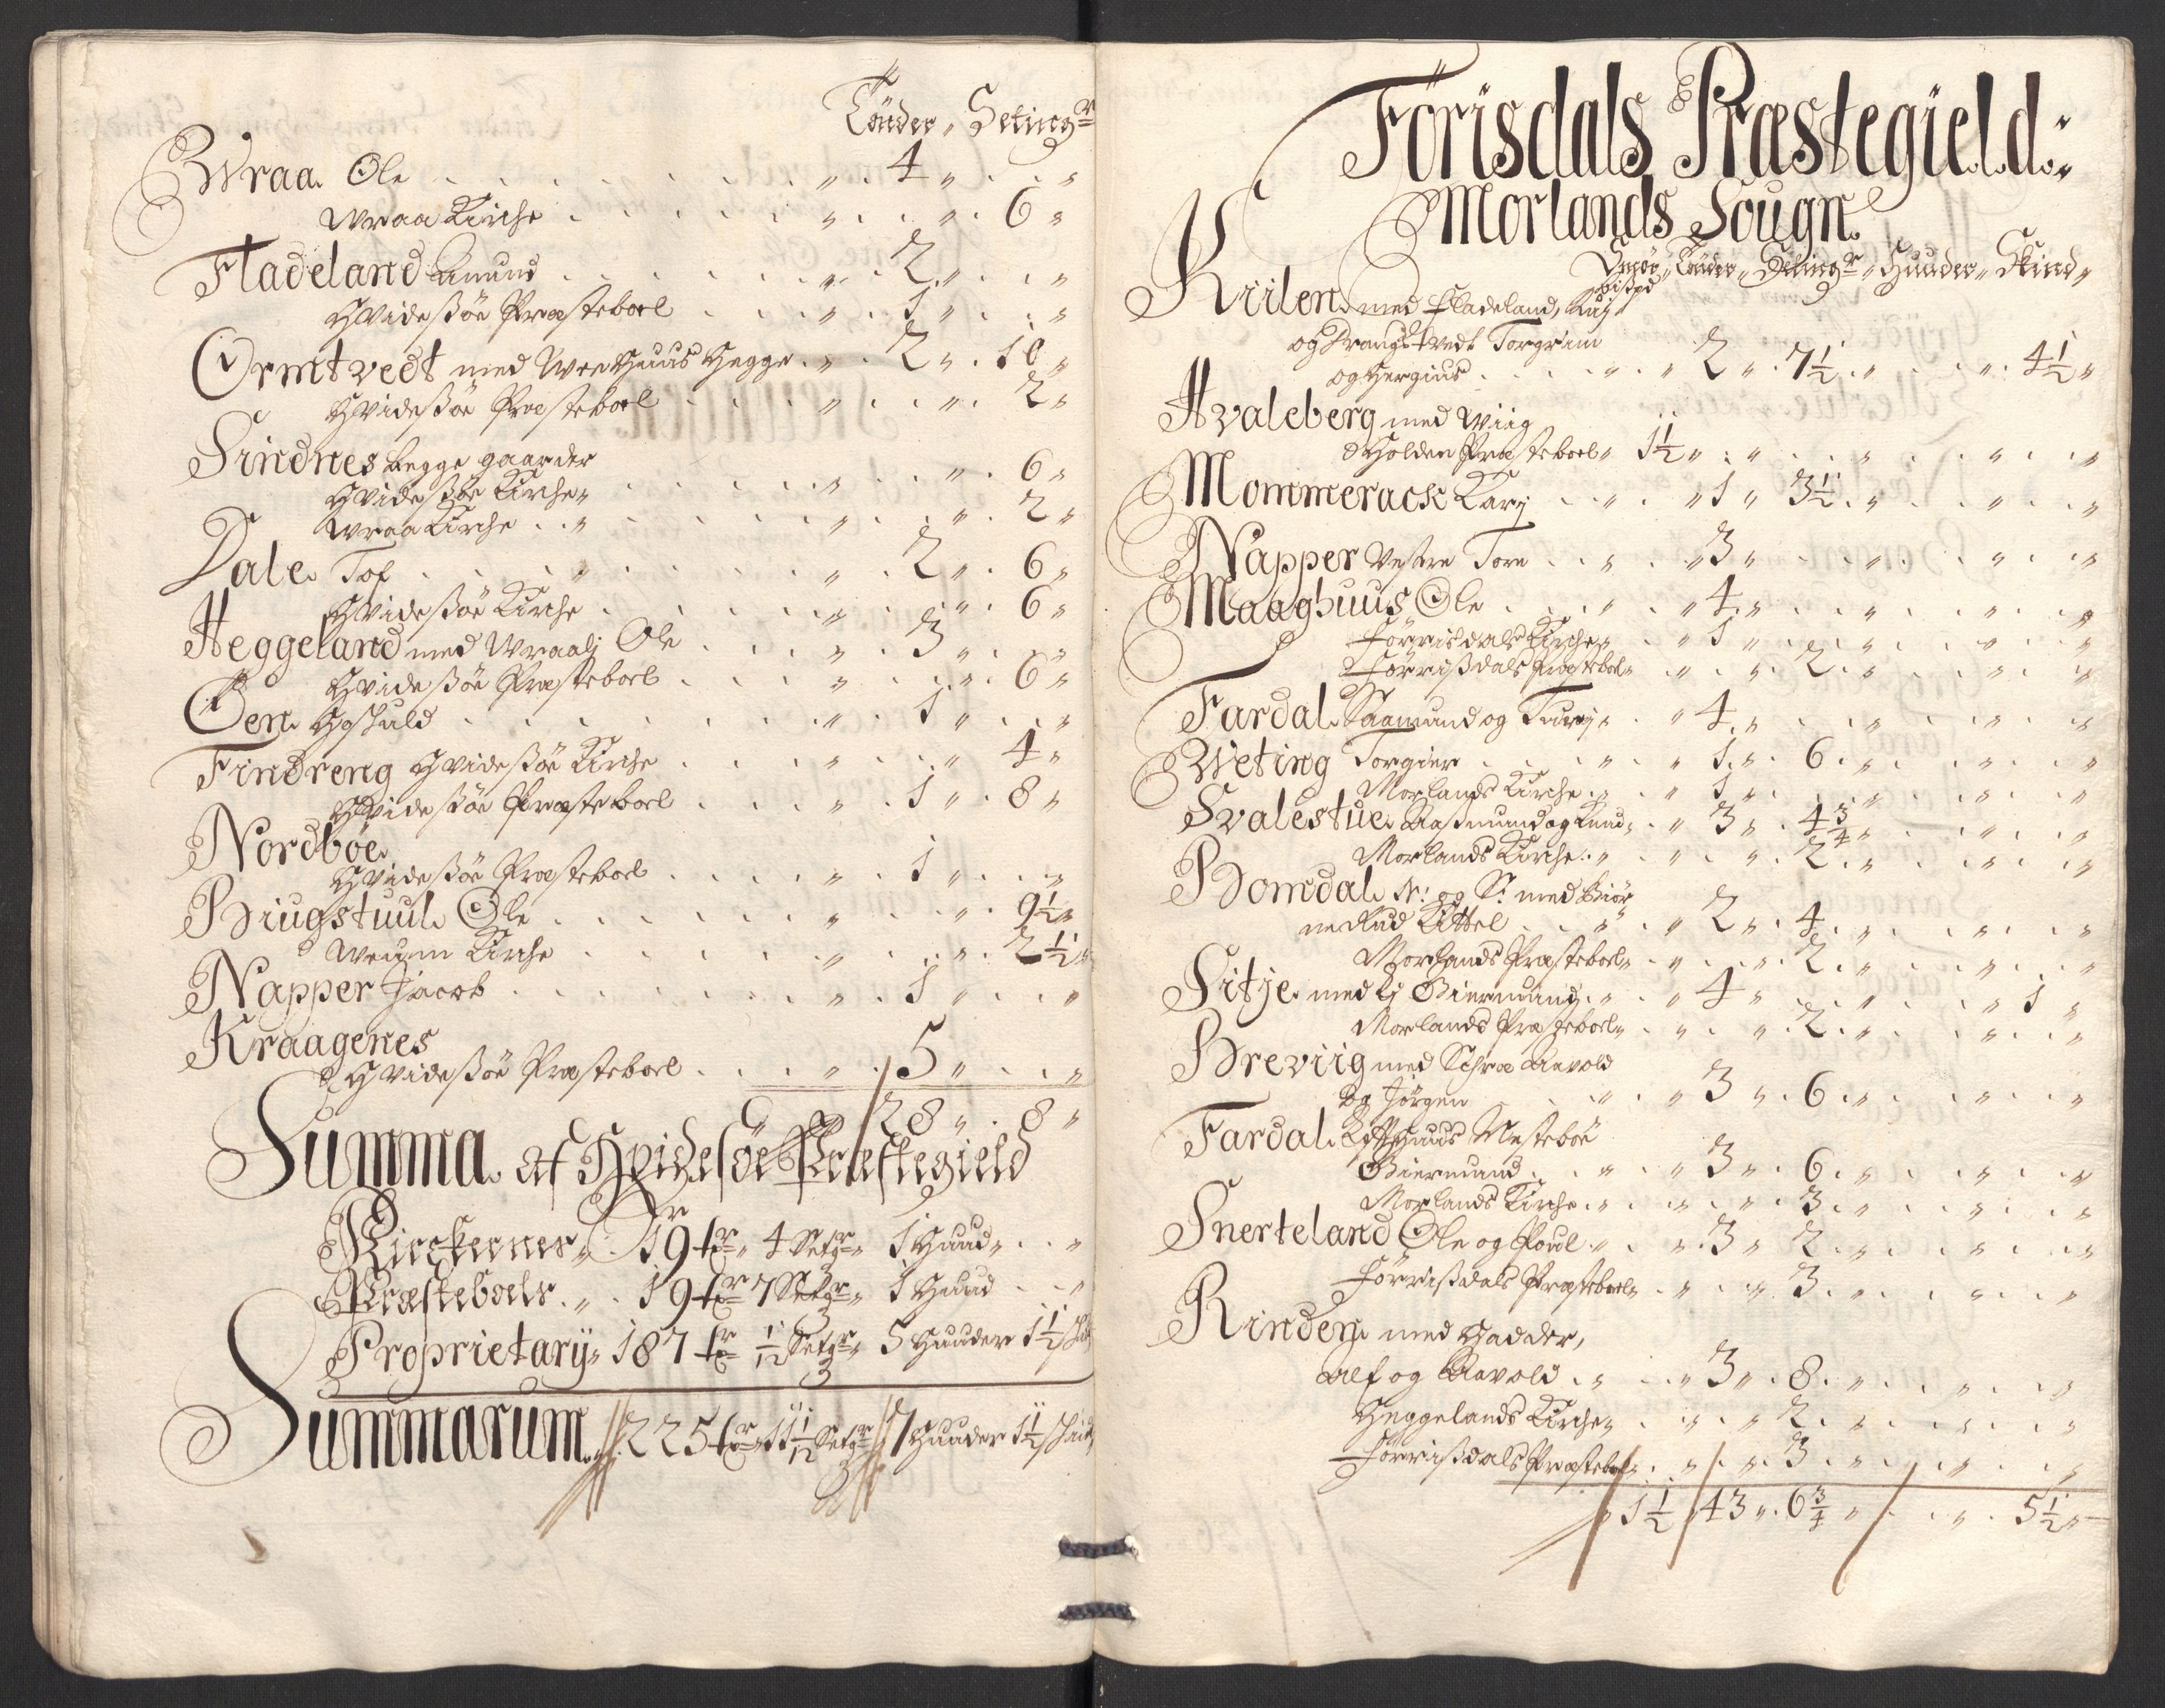 Tönder " Setingr
Wraa. Ole . . . " 4 " . . "
Wraa Kirche . . . " . . " 6 "
Fladeland Amund . . . " 2 " . . "
Hvidesøe Præsteboel . . . " 1 " . . "
Ormtvedt med Wee Huus Hegge . " 2 " 10 "
Hvidesøe Præsteboel . . . " . . " 2 "
Sindnes begge gaarder
Hvidesøe Kirche " . . . " . . " 6 "
Wraa Kirche . . " . . . " . . " 2 "
Dale. Tof . . . " 2 " 6 "
Hvidesøe Kirche . . . " . . " 6 "
Heggeland med Wraalj Ole . . . " 3 " . . "
Hvidesøe Præsteboel . . . " . . " 6 "
Øen. . . . " 1 " . . "
Findreng Hvidesøe Kirche . . . " . . " 4 "
Hvidesøe Præsteboel . . . " 1 " 8 "
Nordbøe.
Hvidesøe Præsteboel . . . " 1 " . . "
Biugstuul. Ole . . . " . . " 9½ "
Weum Kirche . . . " . . " 2½ "
Napper Jacob . . . " 1 " . . "
Kraagenes
Hvidesøe Præsteboel . . . " 5 " . . "
" 128 " 8 "
Summa. af Hvidesøe Præstegield
Kirckernes " 19 tr " 4 Setgr " 1 Huud " . . "
Præsteboele . " 19 tr 7 Setgr " 1 Huud . . "
Proprietarÿ " 187 tr 1/12 Setgr " 5 Huuder 1½
Summarum. 225 tr " 11 1/12 Setgr 7 Huuder 1½
Förisdals Præstegield :
Morlands Sougn.
Tönder " Setingr " Huuder " Skind "
Kiilen. med Fladeland,
og Torgrim
og Hergius . . . " " 2 " 7½ " . . " 4½ "
Hvaleberg med Wiig
Holden Præsteboel " 1½ " . " . . " . . " . . "
Mommerack Karj . . " " 1 " 3½ " . . " . . "
Napper Vestre Tore . . " " 3 " . . " . . " . . "
Maaghuus Ole . . . " " 4 " . . " . . " . . "
Förrisdals Kirche " . . " 1 " . . " . . " . . "
Förrisdals Præsteboel " . " . . " 2 " . . " . . "
Fardal. Saamund og Turj " . " 4 " . . " . . " . . "
Weting Torgier . . . " " 1 " 6 " . . " . . "
Morlands Kirche . " . " 1 " . . " . . " . . "
Svalestue. Aasmund og Knud " . " 3 " 4¾ " . . " . . "
Morlands Kirche . " . " . . " 2 " . . " . . "
Bomdal. N: og S: med Biör
ne Rud Kittel . . . " " 2 " 4 " . . " . . "
Morlands Præsteboel " . " . . " 2 " . . " . . "
Sitje. med Lj Giermund . " . " 4 " . . " . . " 1 "
Morlands Præsteboel " . " . . " 2 " . . " . . "
Breviig med Aavold
og Jörgen . . . " " 3 " 6 " . . " . . "
Fardal. Nestebøe
Giermund . . " . " 3 " 6 " . . " . . "
Morlands Kirche . " . " . . " 3 " . . " . . "
Snerteland Ole og Poul . " . " 3 " 2 " . . " . . "
Förrisdals Præsteboel " . " . . " 3 " . . " . . "
Rinden. med Hadder,
Alf og Aavold . " . " 3 " 8 " . . " . . "
Heggelands Kirche " . " . . " 2 " . . " . . "
Förrisdals Præsteboel " . " . . " 3 " . . " . . "
" 1½ " 43 " 6¾ " . . " 5½ "